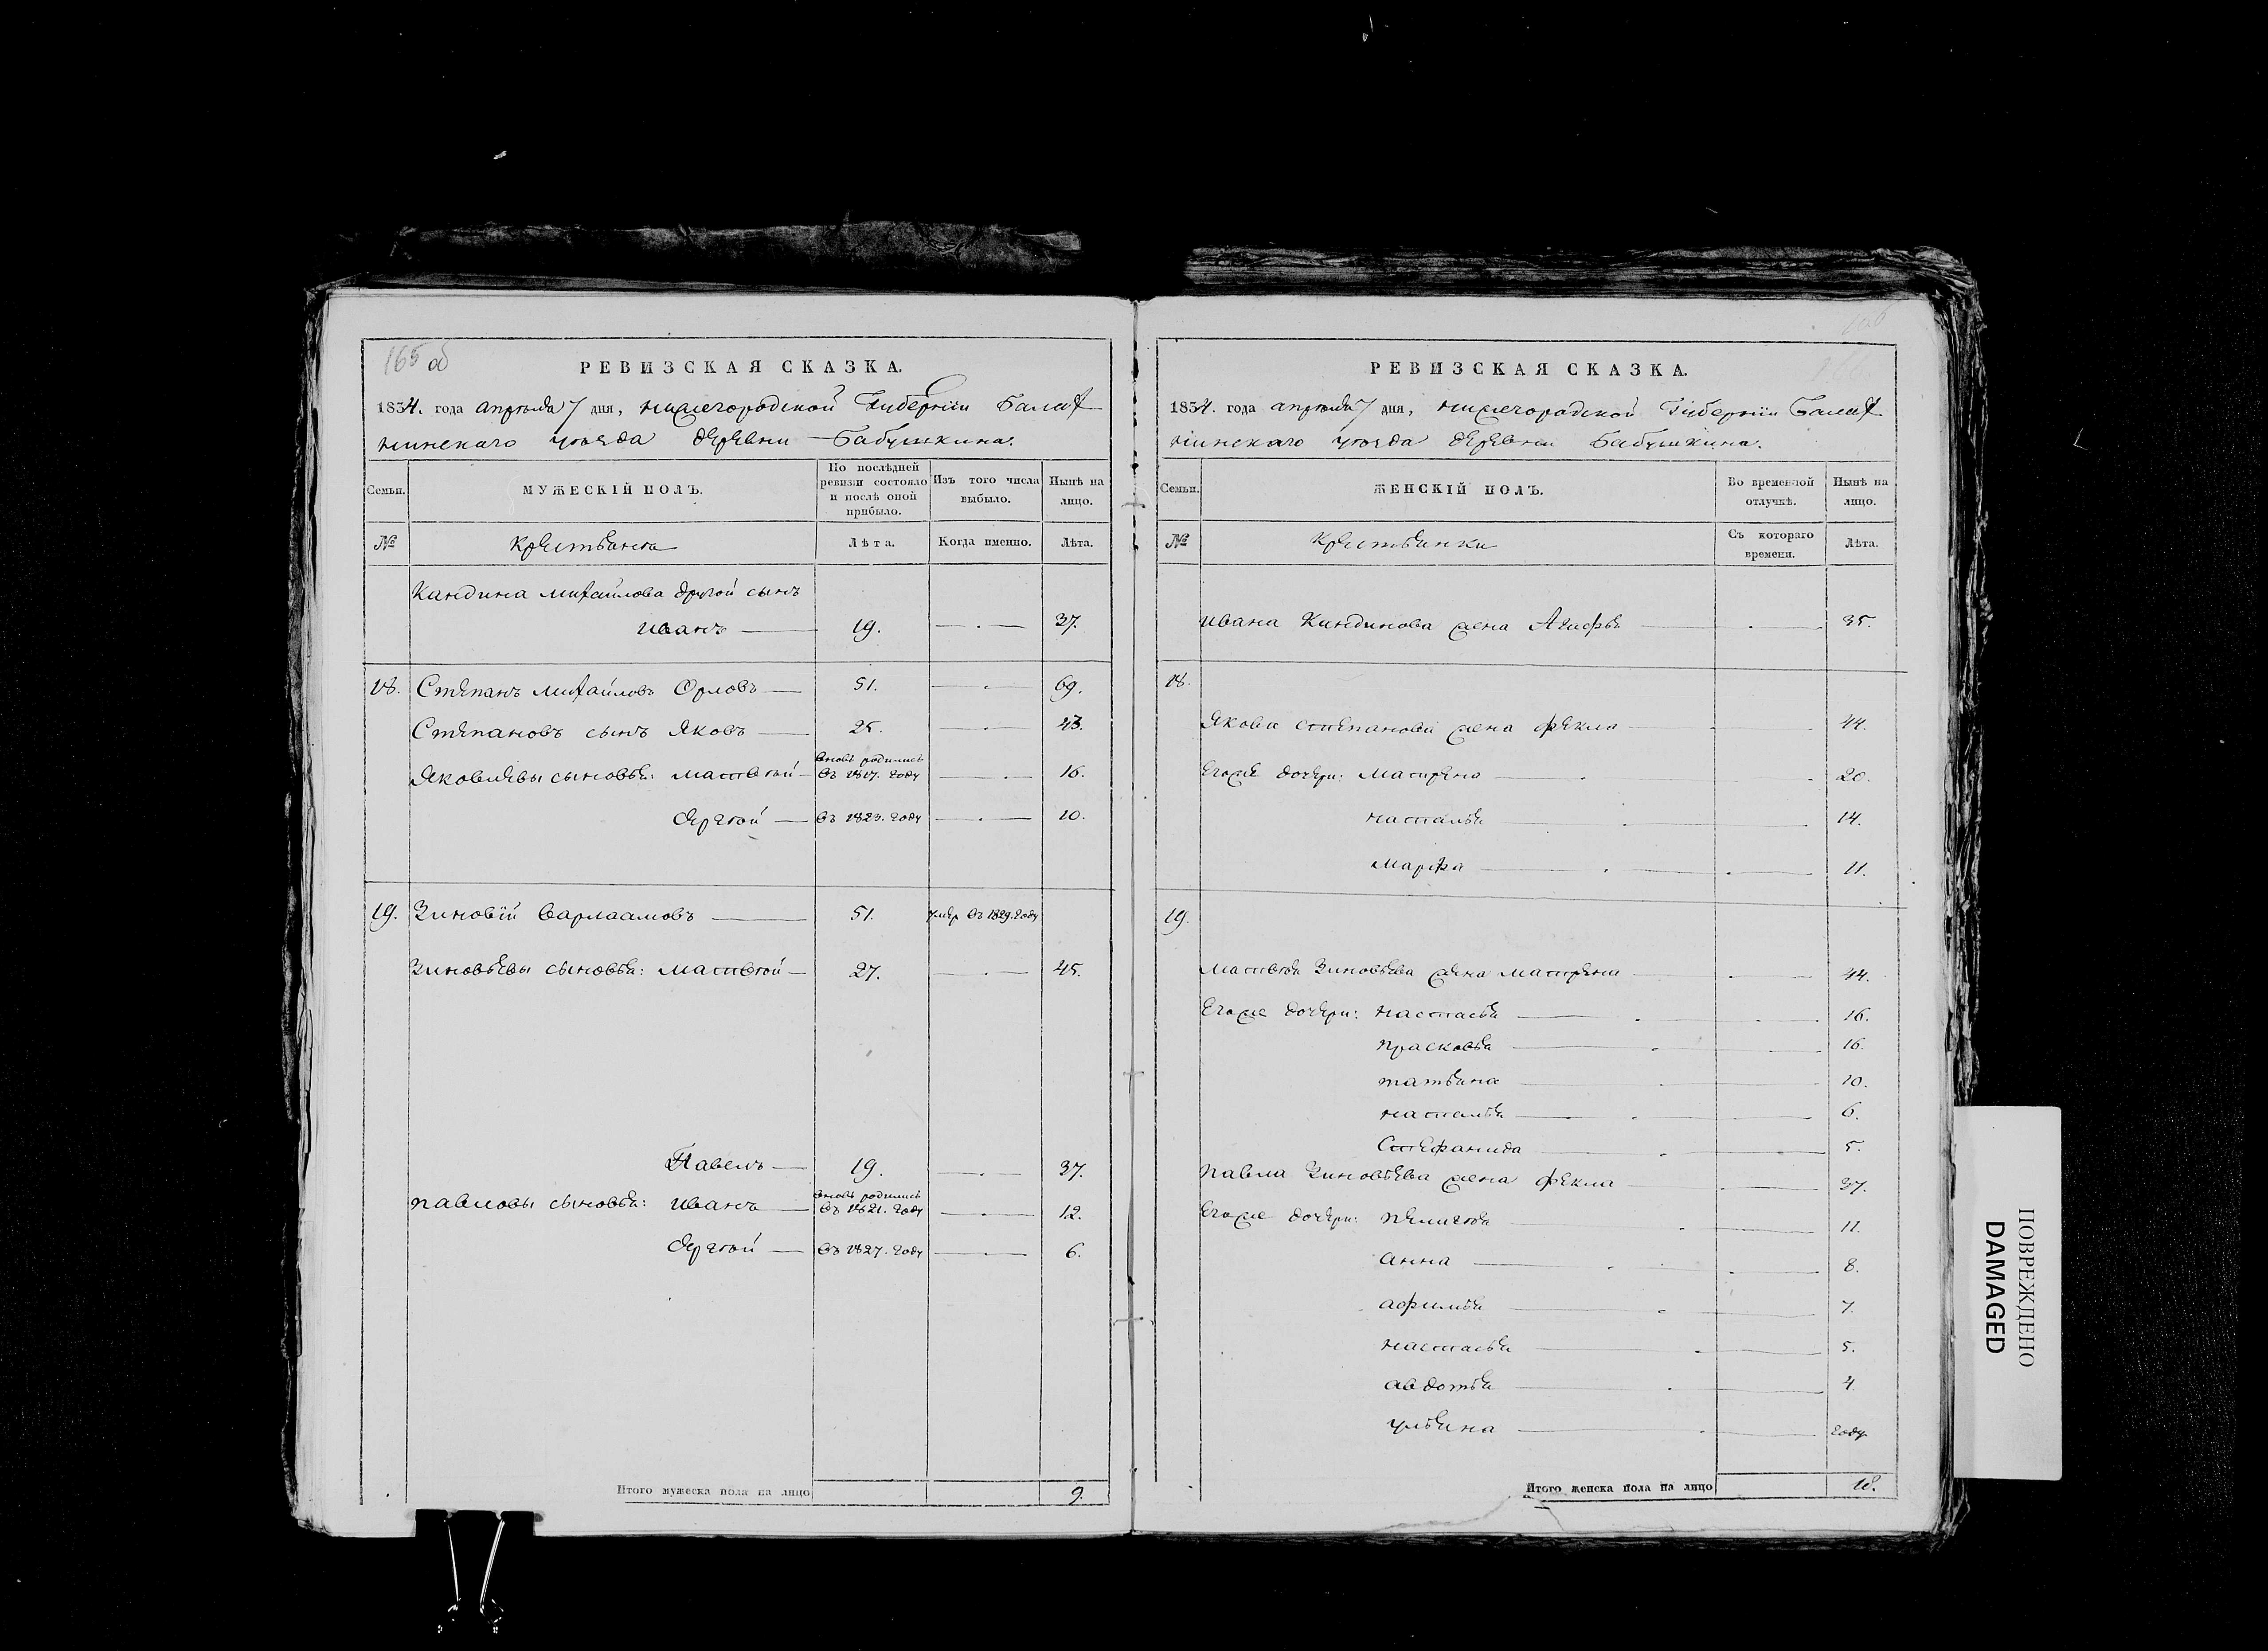 165 об
РЕВИЗСКАЯ СКАЗКА.
1834. года апреля 7 дня, нижегородской Губернiи Балах
нинскаго уезда деревни Бабушкина.
Семьи.
МУЖЕСКІЙ ПОЛЪ.
По послѣдней ревизіи состояло и послѣ оной прибыло.
Изъ того числа выбыло.
Нынѣ на лицо.
№
Крестьяне
Лѣта.
Когда именно.
Лѣта.
Кандина михайлова другой сынъ
иванъ 19. 37.
18. Степанъ михайловъ Орловъ 51. 69.
Степановъ сынъ Яковъ 25. 43.
вновь родились
Яковлевы сыновья: матвѣй въ 1817. году 16.
Сергѣй въ 1823. году 10.
19. Зиновiй Варлаамовъ 51. умер въ 1829. году
Зиновьевы сыновья: матвѣй 27. 45.
Павелъ 19. 37.
вновь родились
павловы сыновья: иванъ въ 1821. году 12.
Сергѣй въ 1827. году 6.
Итого мужеска пола на лицо 9.
РЕВИЗСКАЯ СКАЗКА.
1834. года апреля 7 дня, нижегородской Губернiи Балах
нинскаго уезда деревни Бабушкина.
Семьи.
ЖЕНСКІЙ ПОЛЪ.
Во временной отлучкѣ.
Нынѣ на лицо.
№
Крестьянки
Съ котораго времени.
Лѣта.
ивана Кандинова жена Агафья 35.
18.
Якова степанова жена фекла 44.
Егоже дочери: Матрена 20.
наталья 14.
марфа 11.
19.
матвѣя Зиновьева жена матрена 44.
Егоже дочери: настасья 16.
прасковья 16.
татьяна 10.
наталья 6.
Стефанида 5.
павла Зиновьева жена фекла 37.
Егоже дочери: пелагѣя 11.
анна 8.
афимья 7.
настасья 5.
авдотья 4.
ульяна году
Итого женска пола на лицо 18.
ПОВРЕЖДЕНО
DAMAGED